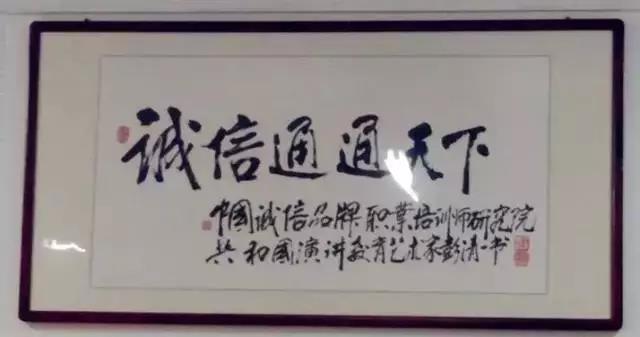 誠信通通天下
中國诚信品牌职業培训师研究院
共和國演讲教育艺术家彭清一书